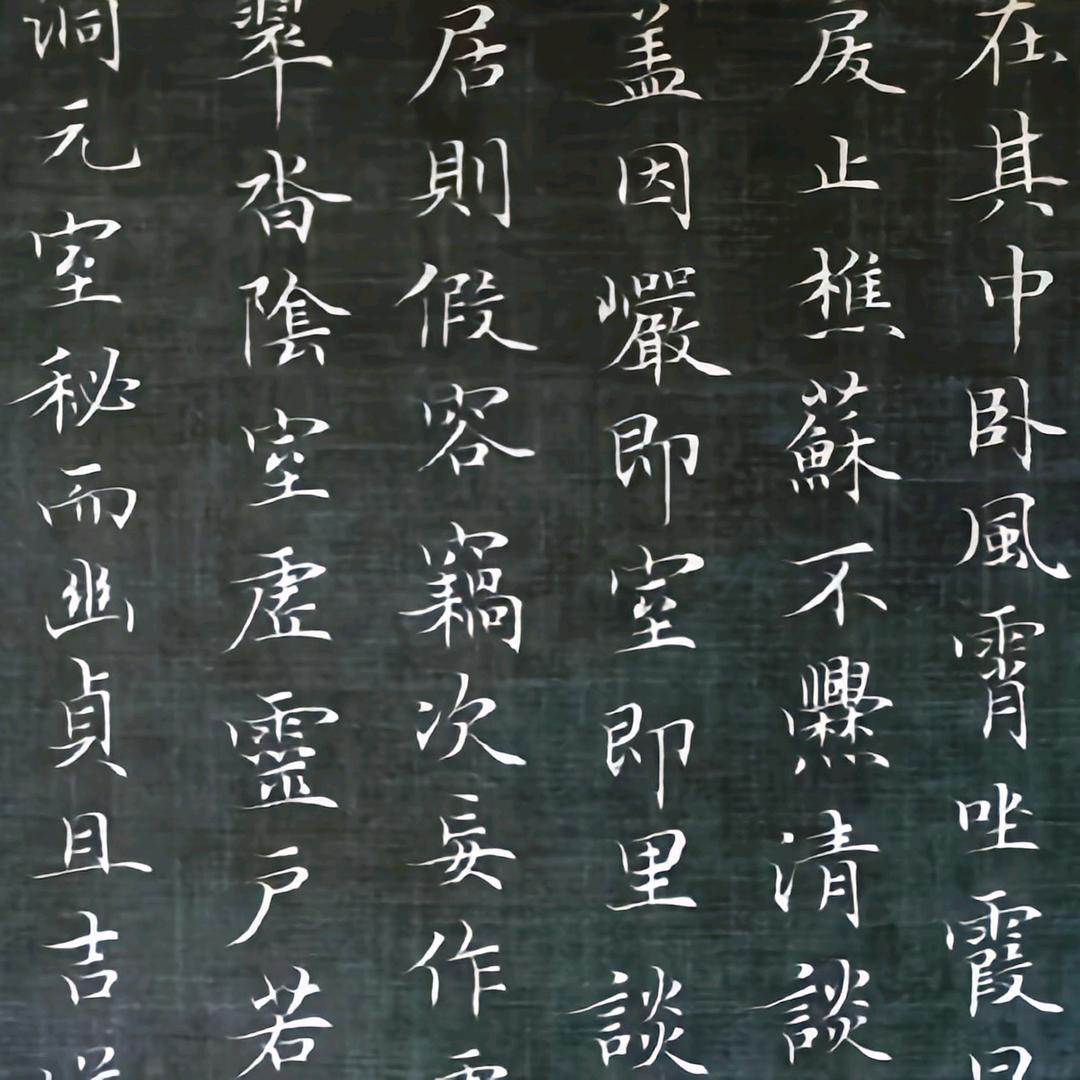 在其中卧風霄坐霞
戾止樵蘇不爨清談
盖因巗即室即里談
居則假容竊次妄作
翠沓隂室虛靈户若
洞元室秘而幽貞且吉